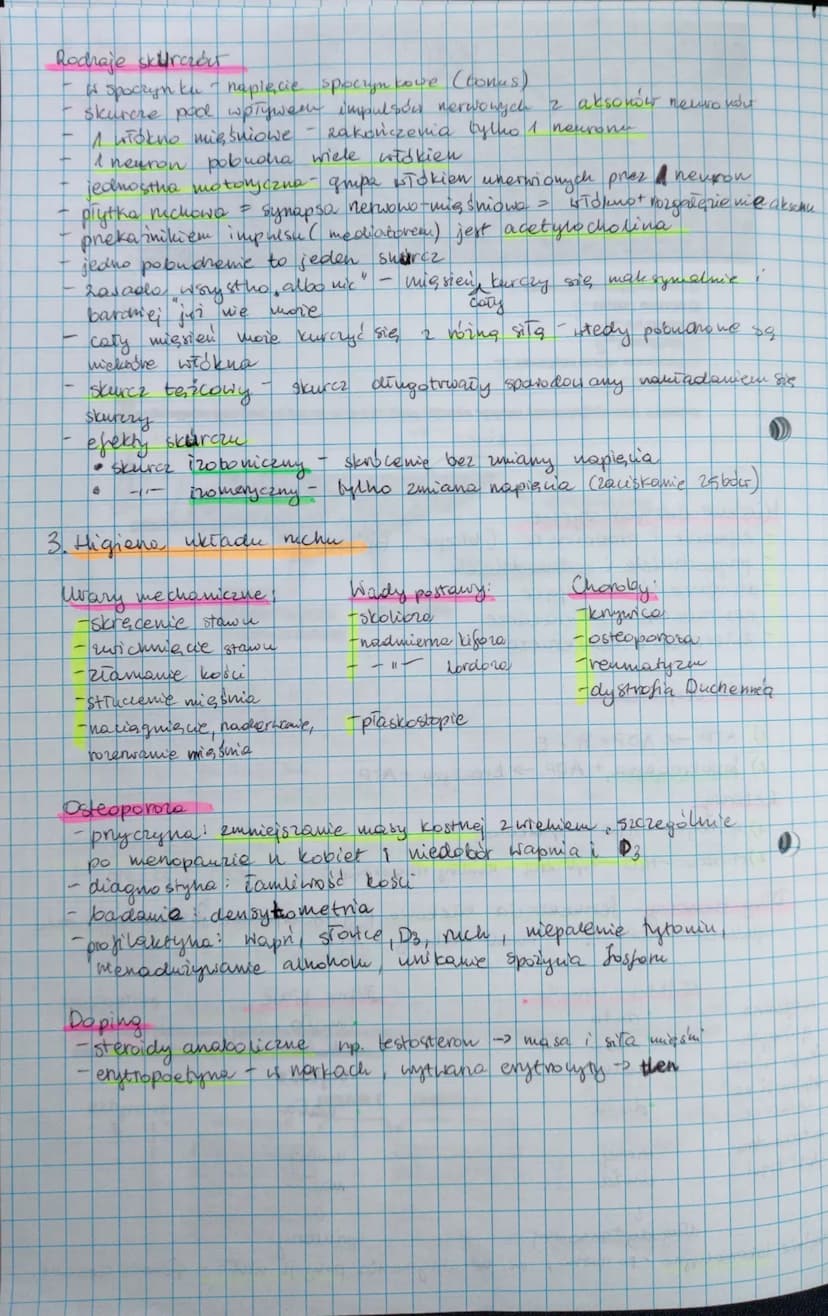 Rodzaje skurczów
- w spoczynku - napięcie spoczynkowe (tonus)
- skurcze pod wpływem impulsów nerwowych z aksonów neuronów
- 1 włókno mięśniowe - zakończenia tylko 1 neuronu
- 1 neuron pobudza wiele włókien
- jednostka motoryczna - grupa włókien unerwionych przez 1 neuron
- płytka ruchowa = synapsa nerwowo-mięśniowa = włókno + rozgałęzienie aksonu
- przekaźnikiem impulsu (mediatorem) jest acetylocholina
- jedno pobudzenie to jeden skurcz
- zasada „wszystko albo nic" - mięsień kurczy się maksymalnie i
cały
bardziej już nie może
- cały mięsień może kurczyć się z różną siłą - wtedy pobudzone są
niektóre włókna
- skurcz tężcowy - skurcz długotrwały spowodowany nakładaniem się
skurczy
- efekty skurczu
• skurcz izotoniczny - skrócenie bez zmiany napięcia
• -||- izometryczny - tylko zmiana napięcia (zaciskanie zębów)
3. Higiena układu ruchu
Urazy mechaniczne: Wady postawy: Choroby:
- skręcenie stawu - skolioza - krzywica
- zwichnięcie stawu - nadmierna kifoza - osteoporoza
- złamanie kości - -||- lordoza - reumatyzm
- stłuczenie mięśnia - dystrofia Duchenne'a
- naciągnięcie, naderwanie, - płaskostopie
rozerwanie mięśnia
Osteoporoza
- przyczyna: zmniejszanie masy kostnej z wiekiem, szczególnie
po menopauzie u kobiet i niedobór wapnia i D3
- diagnostyka: łamliwość kości
- badania: densytometria
- profilaktyka: wapń, słońce, D3, ruch, niepalenie tytoniu,
nienadużywanie alkoholu, unikanie spożywa fosforu
Doping
- steroidy anaboliczne np. testosteron -> masa i siła mięśni
- erytropoetyna - w nerkach, wytwarza erytrocyty -> tlen